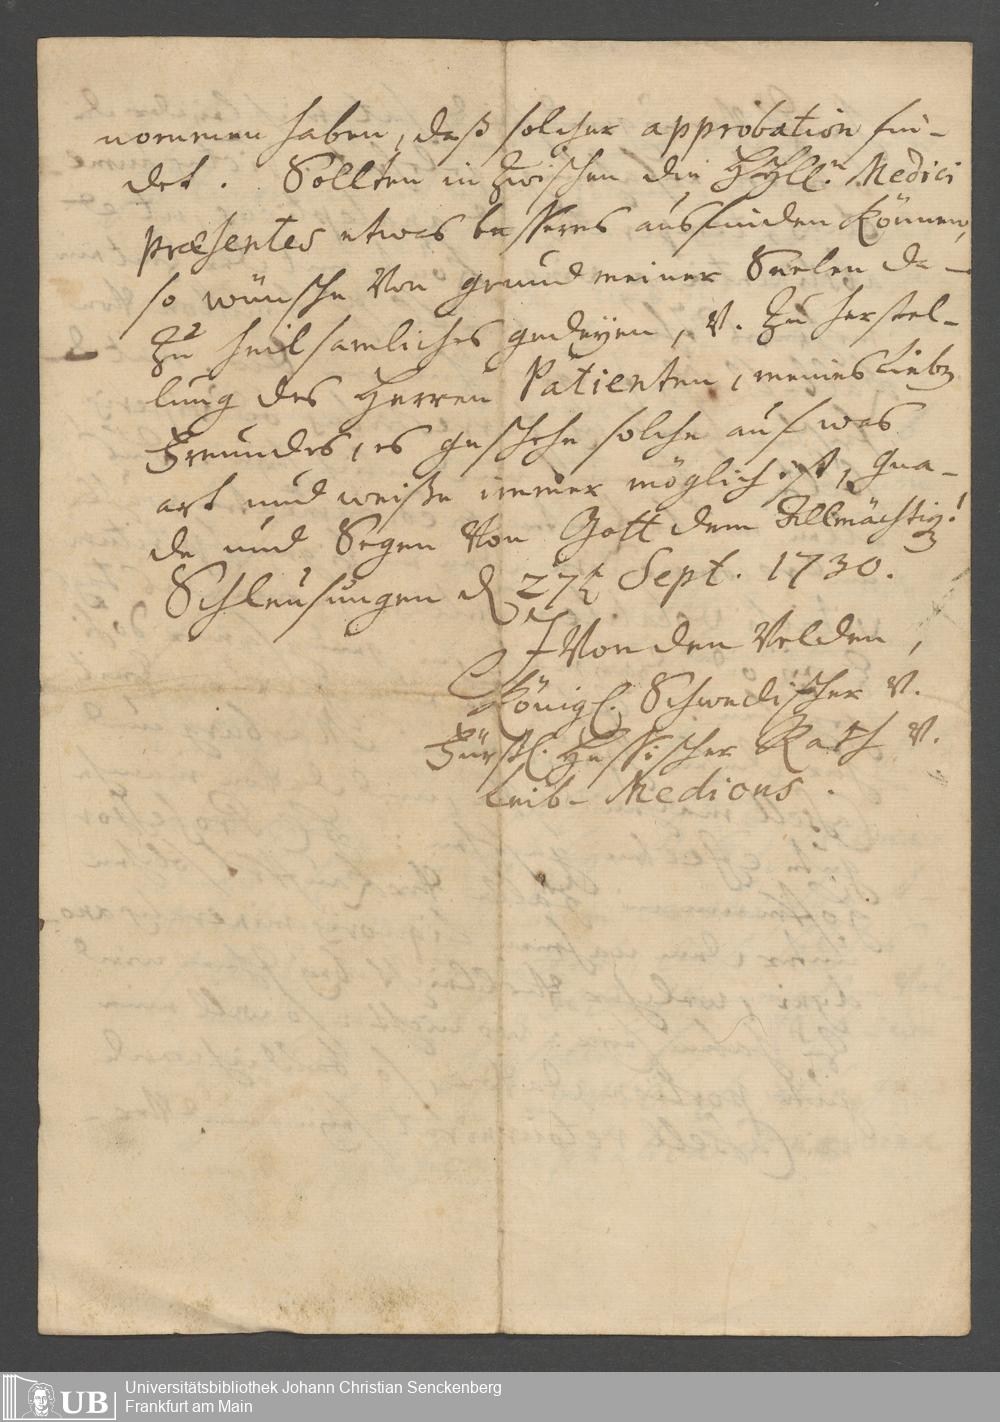 nommen haben, daß solcher approbation fin-
det. Sollten inzwischen die HHll. Medici
præsentes etwas besseres ausfinden können,
so wünsche von grund meiner Seelen da-
zu heilsamliches gedeyen, v. zu herstel-
lung des Herren Patienten, meines Liebn
Freundes, es geschehe solche auf was
art und weiße immer möglich ist, Gna-
de und Segen von Gott dem Allmächtign!
Schleusungen d 27t Sept. 1730.
J Von den Velden,
Königl. Schwedischer v.
Fürstl. Hessischer Rath v.
Leib-Medicus.
UB
Universitätsbibliothek Johann Christian Senckenberg
Frankfurt am Main